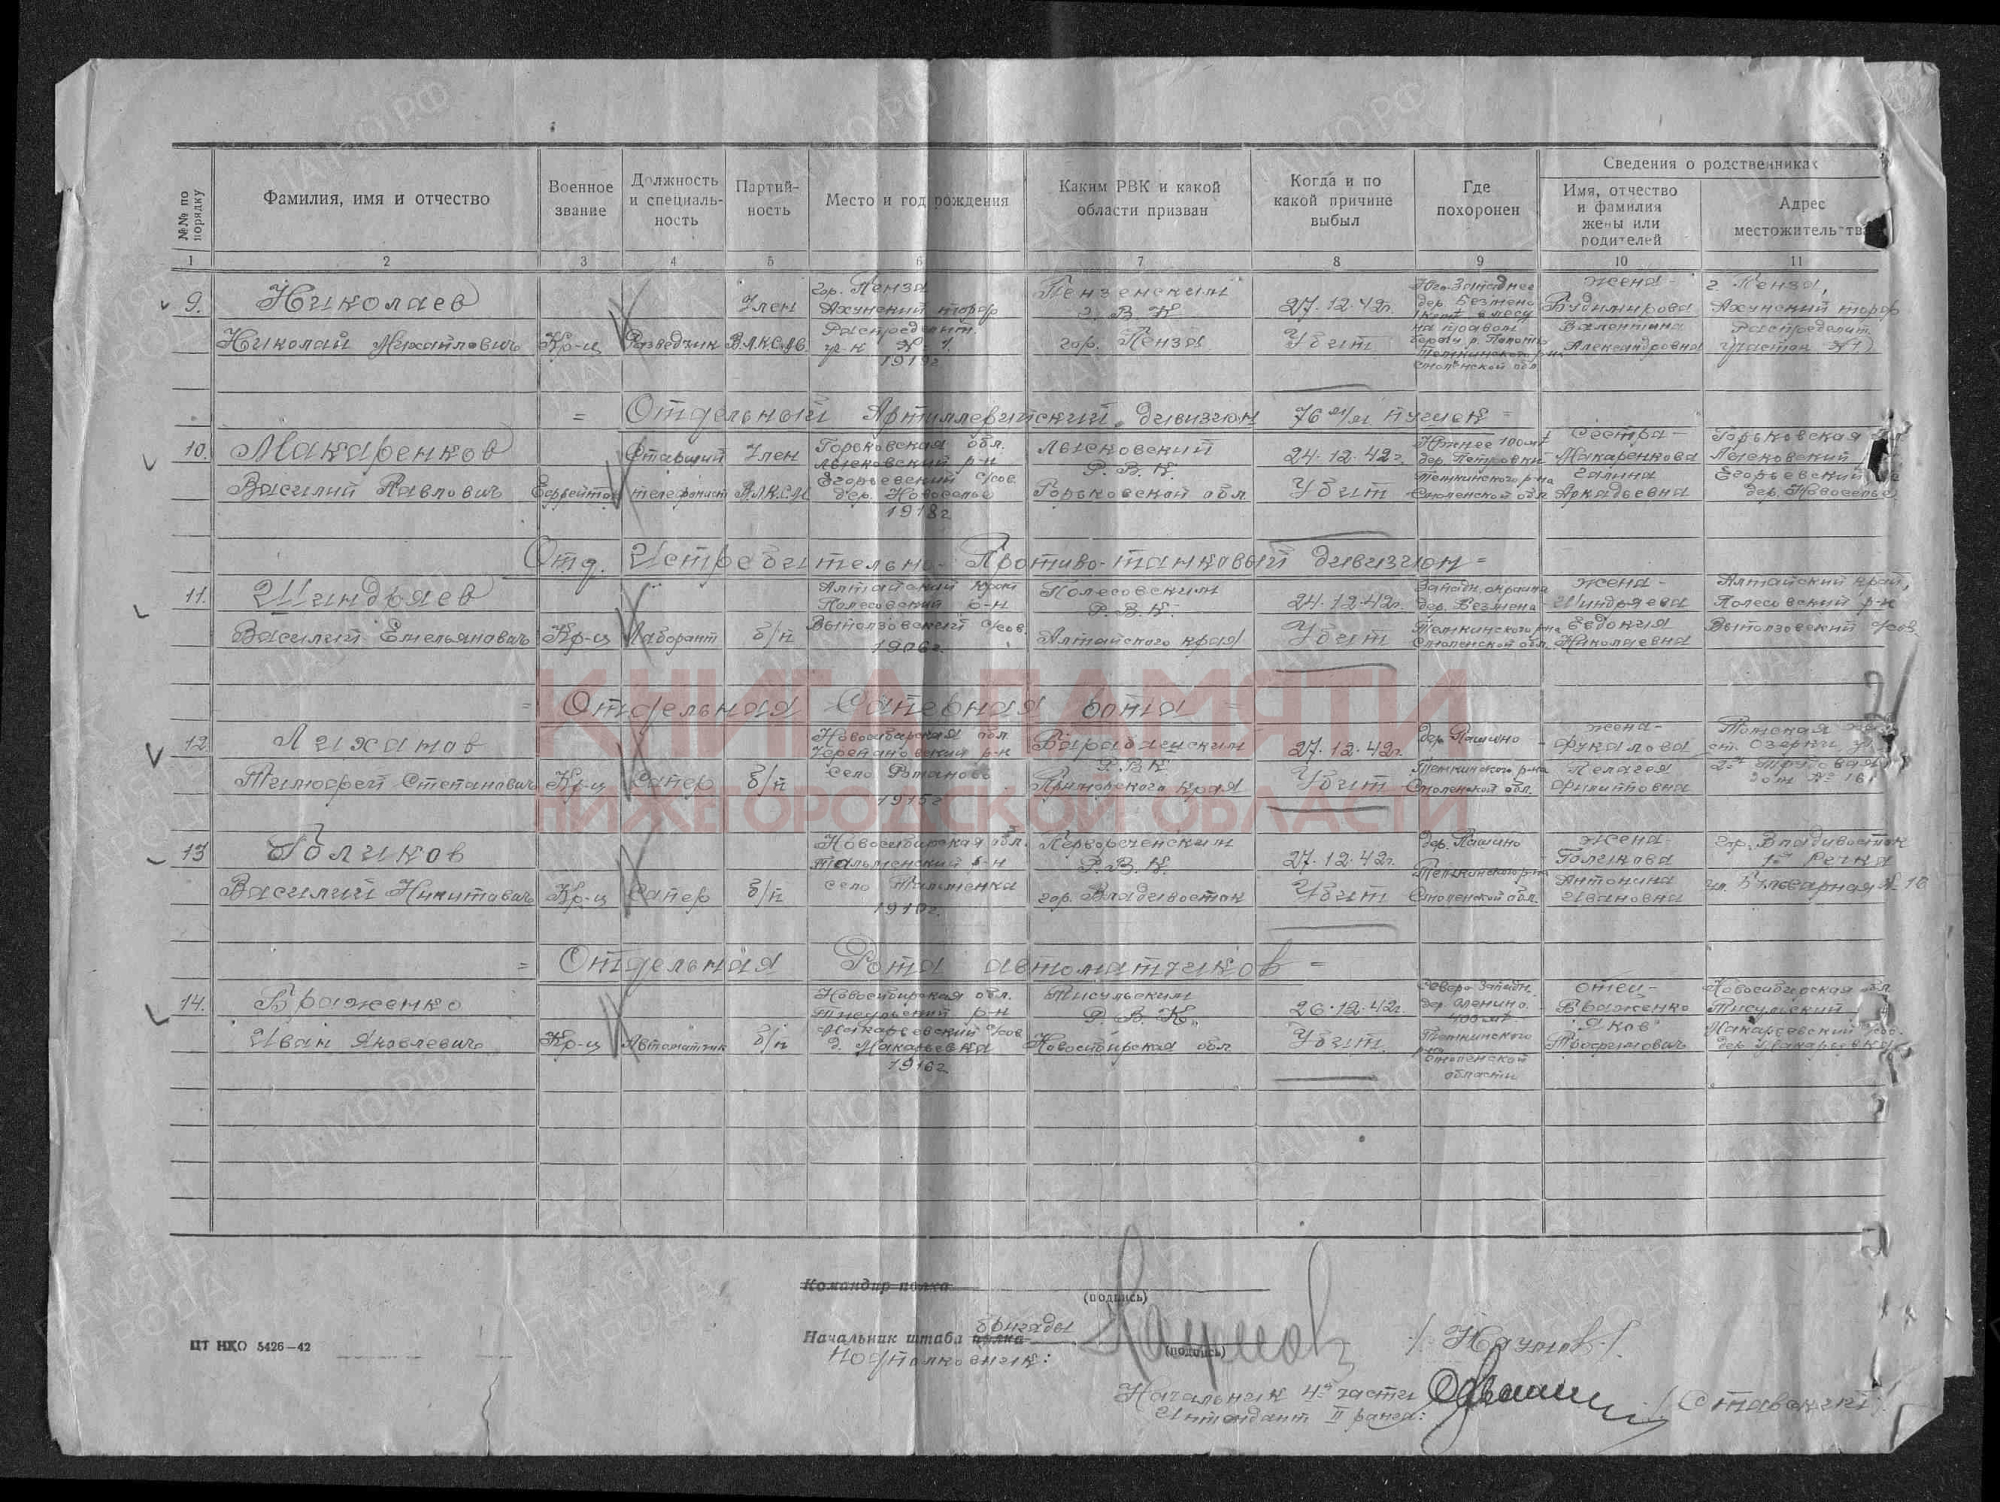 №№ по порядку
Фамилия, имя и отчество
Военное звание
Должность и специаль-ность
Партий-ность
Место и год рождения
Каким РВК и какой области призван
Когда и по какой причине выбыл
Где похоронен
Сведения о родственниках
Имя, отчество и фамилия жены или родителей
Адрес местожительства
1 2 3 4 5 6 7 8 9 10 11
9. Николаев
Николай Михайлович
Кр-ц
Разведчик
Член В.Л.К.С.М.
гор. Пенза
Ахунский торф
1919г
Пензенским
Г.В.К.
гор. Пенза
27.12.42г.
Убит
Юго-Западнее
дер. Безмено
в лесу
на правом
Темкинского р-на
Смоленской обл
жена-
Будимирова
Валентина
Александровна
г. Пенза,
Ахунский торф
Распределит.
участок №1
= Отдельный Артиллерийский дивизион 76 м/м пушек =
10. Макаренков
Василий Павлович
Ефрейтор
Старший
телефонист
Член
В.Л.К.С.М
Горьковская обл.
Лысковский р-н
Егорьевский с/сов.
дер. Новоселье
1918г
Лысковский
Р.В.К.
Горьковской обл
24.12.42г.
Убит
Южнее 100мт
дер. Петровки
Темкинского р-на
Смоленской обл.
Сестра-
Макаренкова
Галина
Аркадьевна
Горьковская
Лысковский
Егорьевский
дер. Новоселье
Отд. Истребительно-Противо-танковый дивизион =
11. Шиндряев
Василий Емельянович
Кр-ц
Лаборант
б/п
Алтайский край
Полесовский р-н
Вытолзовский с/сов.
1906г.
Полесовским
Р.В.К.
Алтайского края
24.12.42г.
Убит
Западн. окраина
дер. Безмена
Темкинского р-на
Смоленской обл.
жена-
Шиндряева
Евдокия
Николаевна
Алтайский край,
Полесовский р-н
Вытолзовский с/сов.
= Отдельная Саперная рота =
КНИГА ПАМЯТИ
НИЖЕГОРОДСКОЙ ОБЛАСТИ
12. Лиханов
Тимофей Степанович
Кр-ц
Сапер
б/п
Новосибирская обл
Черепановский р-н
село Романово
1915г
Барабашским
Р.В.К.
Приморского края
27.12.42г.
Убит
дер. Пашино
Темкинского р-на
Смоленской обл.
жена-
Фукалова
Пелагея
Филипповна
Томская
ст. Озерки
дом № 16
13 Голиков
Василий Никитович
Кр-ц
Сапер
б/п
Новосибирская обл.
Тальменский р-н
село Тальменка
1910г.
Первореченским
Р.В.К.
гор. Владивосток
27.12.42г.
Убит
дер. Пашино
Темкинского р-на
Смоленской обл.
жена-
Голикова
Антонина
Ивановна
гор. Владивосток
1я Речка
ул. Бульварная № 16
= Отдельная Рота автоматчиков =
14. Враженко
Иван Яковлевич
Кр-ц
Автоматчик
б/п
Новосибирская обл.
Тисульский р-н
Макарьевский с/сов
д. Макарьевка
1916г
Тисульским
Р.В.К.
Новосибирская обл
26.12.42г.
Убит.
Северо Западн.
дер. Аленино.
400мт.
Темкинского
р-на
Смоленской
области
отец-
Враженко
Яков
Трофимович
Новосибирская обл
Тисульский
Макарьевский с/сов.
дер. Макарьевка
Командир полка
(подпись)
Начальник штаба полка бригады
(подпись)
Подполковник:
/Наумов/.
Начальник 4й части
Интендант II ранга:
/Ставский/
ЦТ НКО 5426—42